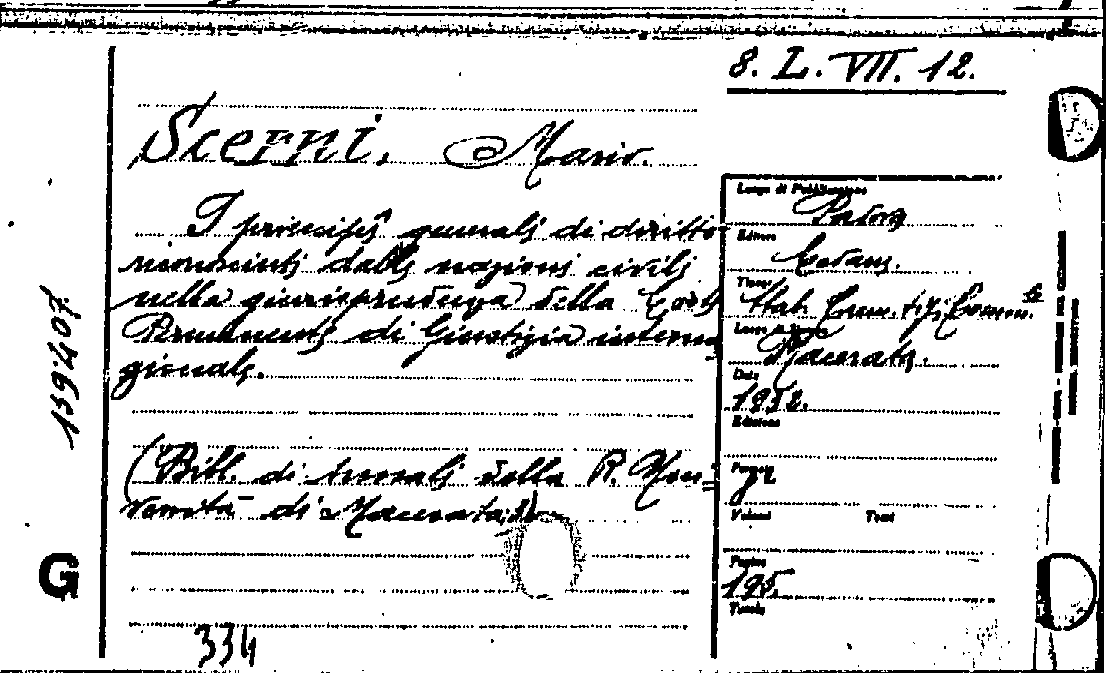 8. L. VII. 12.
Scerni, Mario.
I principî generali di diritto
riconosciuti dalle nazioni civili
nella giurisprudenza della Corte
Permanente di Giustizia interna
zionale.
(Bibl. di annali della R. Uni=
versità di Macerata,
334
139407
G
Luogo di Pubblicazione
Padova
Editore
Cedam.
Tipogr.
Stab. Tip.
Macerata.
Data
1932.
Edizione
Formato
Volumi Tomi
Pagine
195.
Tavole